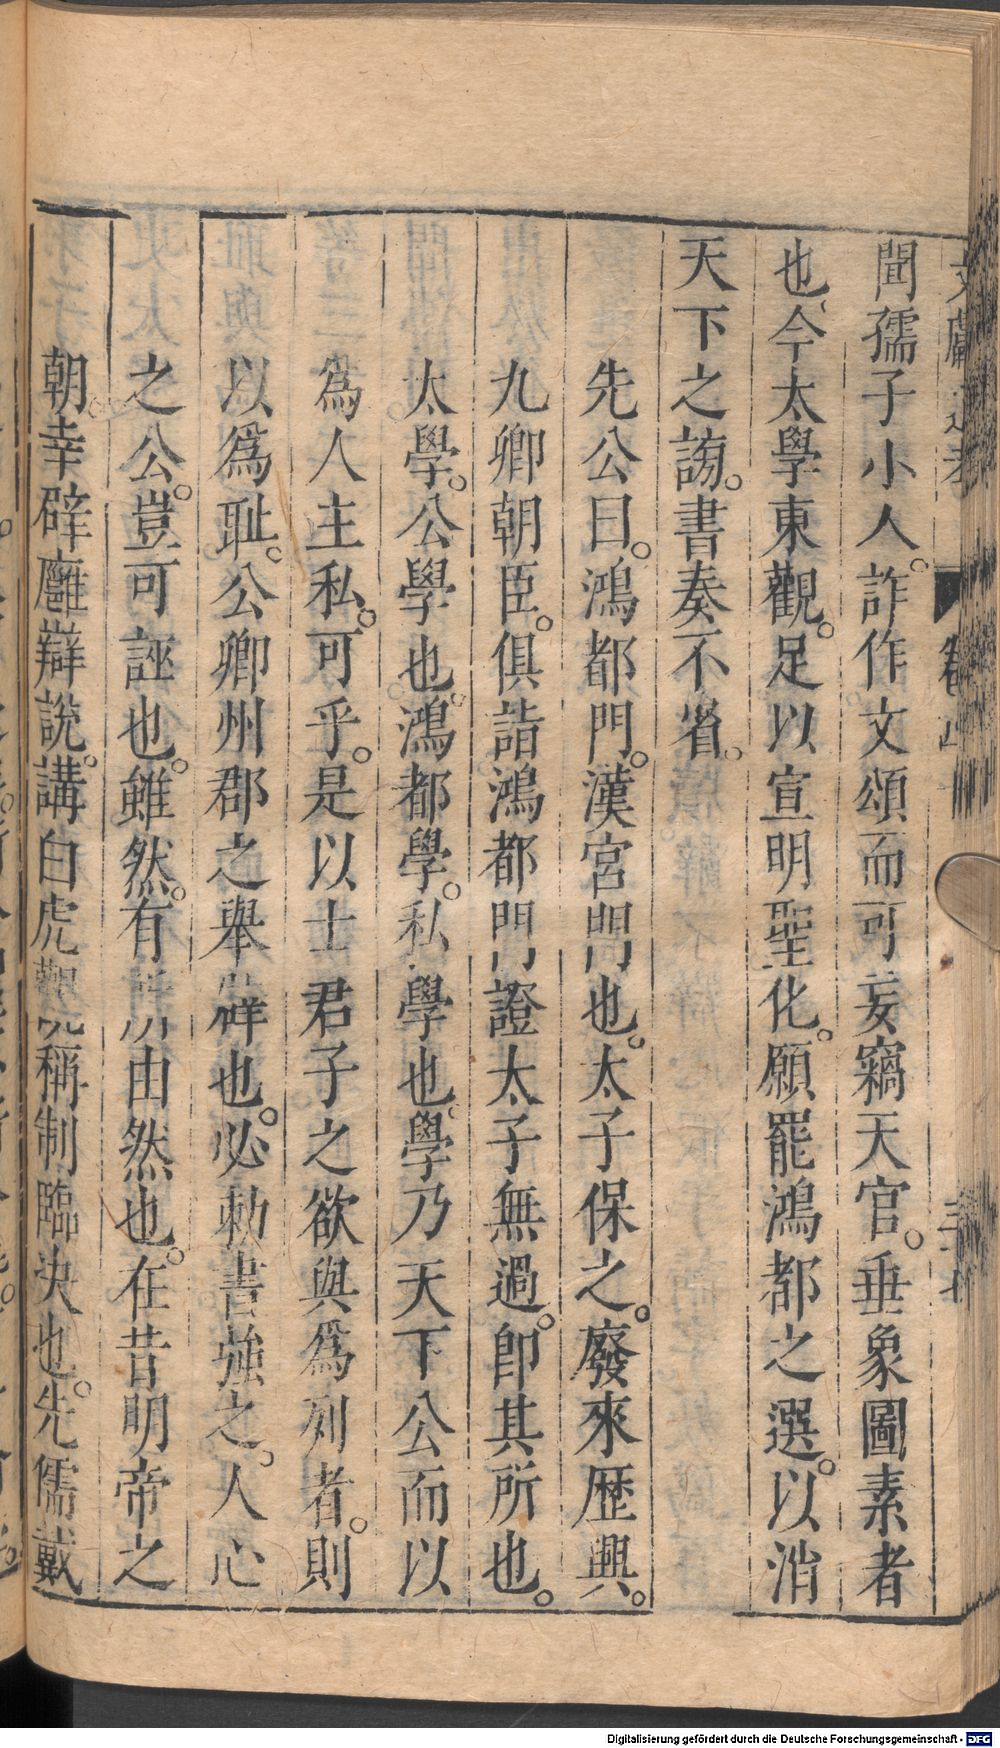 聞孺子小人。詐作文頌而可妄竊天官。垂象圖素者
也、今太學東觀。足以宣明聖化。願罷鴻都之選。以消
天下之謗。書奏不省。
先公曰。鴻都門。漢宮門也。太子保之。廢來歷興。
九卿朝臣。俱詣鴻都門證太子無過。卽其所也。
太學。公學也。鴻都學。私學也。學乃天下公而以
爲人主私。可乎。是以士君子之欲與爲列者。則
以爲耻。公卿州郡之舉辟也。必勑書強之。人心
之公。豈可誣也。雖然。有所由然也。在昔明帝之
朝。幸辟廱辯說。講白虎觀稱制臨決也。先儒戴
文獻通考
Digitalisierung gefördert durch die Deutsche Forschungsgemeinschaft - DFG